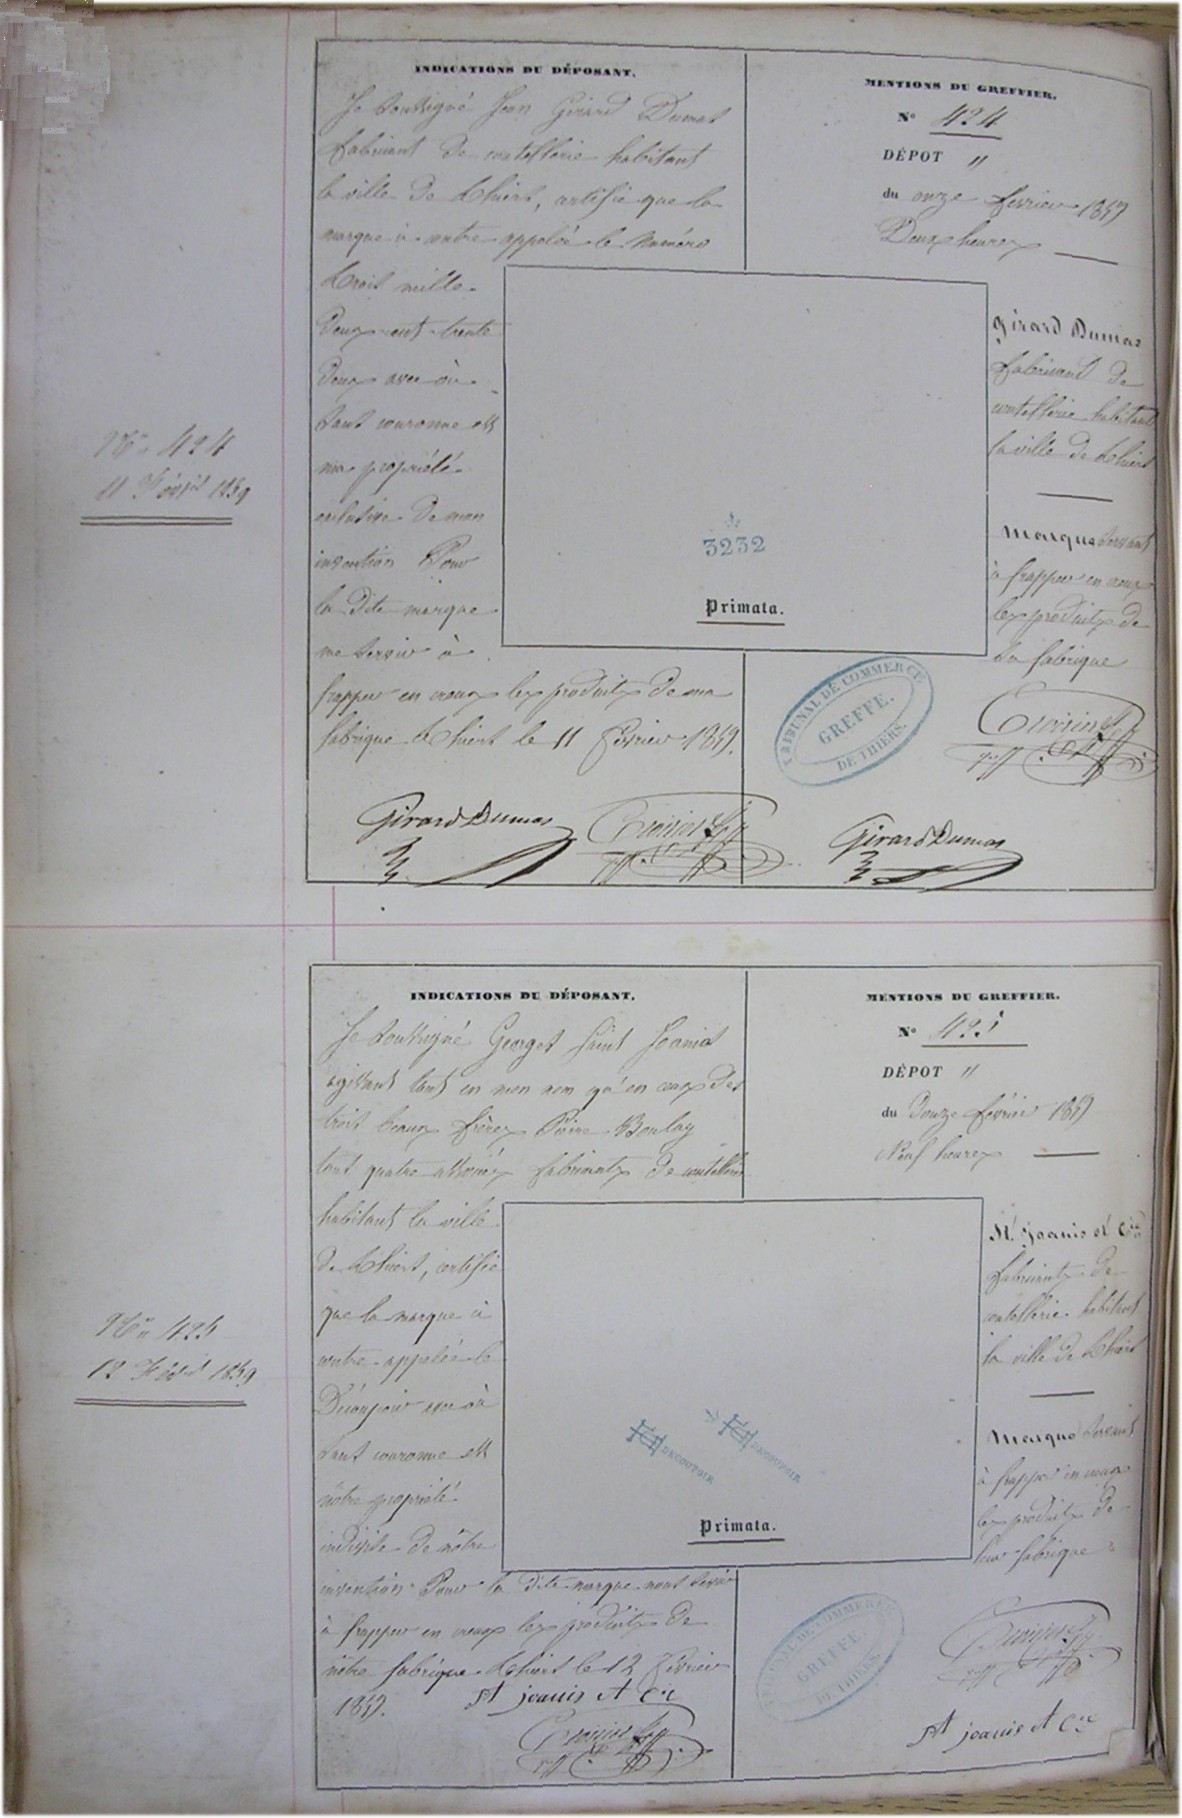 INDICATIONS DU DÉPOSANT.
Je soussigné Jean Girard Dumas
fabricant de coutellerie habitant
la ville de Thiers, certifie que la
marque ci contre appelée le numéro
trois mille
deux cent trente
deux avec ou
sans couronne est
ma propriété
exclusive de mon
invention Pour
la dite marque
me servir à
frapper en creux les produits de ma
fabrique Thiers le 11 février 1859.
Girard Dumas
MENTIONS DU GREFFIER.
N° 424
DÉPOT "
du onze février 1859
Deux heures
Girard Dumas
fabricant de
coutellerie habitant
la ville de Thiers
Marque servant
à frapper en creux
les produits de
sa fabrique
3232
Primata.
TRIBUNAL DE COMMERCE
GREFFE.
DE THIERS.
Girard Dumas
N° 424
11 Févri 1859
INDICATIONS DU DÉPOSANT.
Je soussigné Georges Saint Joanis
agissant tant en mon nom qu'en ceux des
trois beaux frères Pierre Boulay
tous quatre associés fabricants de coutellerie
habitant la ville
de Thiers, certifie
que la marque ci
contre appelée le
Découpoir avec ou
sans couronne est
nôtre propriété
indivise de nôtre
invention Pour la dite marque nous servir
à frapper en creux les produits de
nôtre fabrique Thiers le 12 février
1859.
St joanis et Cie
MENTIONS DU GREFFIER.
N° 425
DÉPOT "
du Douze février 1859
Neuf heures
St Joanis et Cie
fabricants de
coutellerie habitant
la ville de Thiers
Marque servant
à frapper en creux
les produits de
leur fabrique
DECOUPOIR
DECOUPOIR
Primata.
TRIBUNAL DE COMMERCE
GREFFE.
DE THIERS.
St joanis et Cie
N° 425
12 Févr 1859